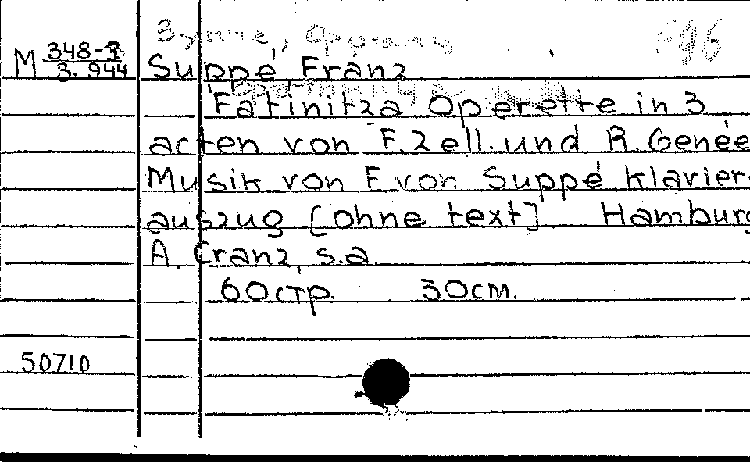 M 348-7
3.944
Suppé Franz
Fatinitza Operette in 3
acten von F. Zell. und R. Genée
Musik von F. von Suppé Klavier-
auszug [ohne text] Hamburg
A. Cranz, s.a.
60стр. 30см.
50710